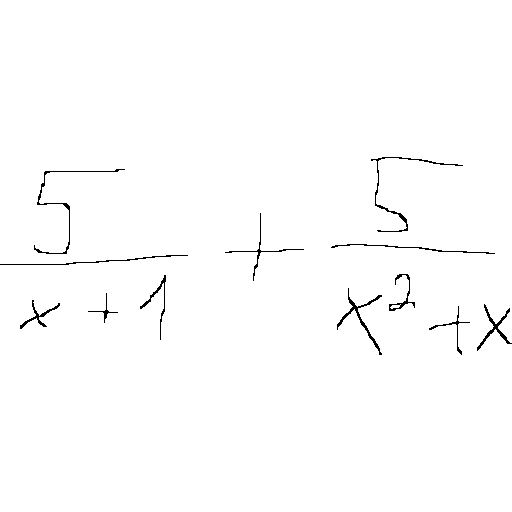 5/(x + 1) + 5/(x² + x)